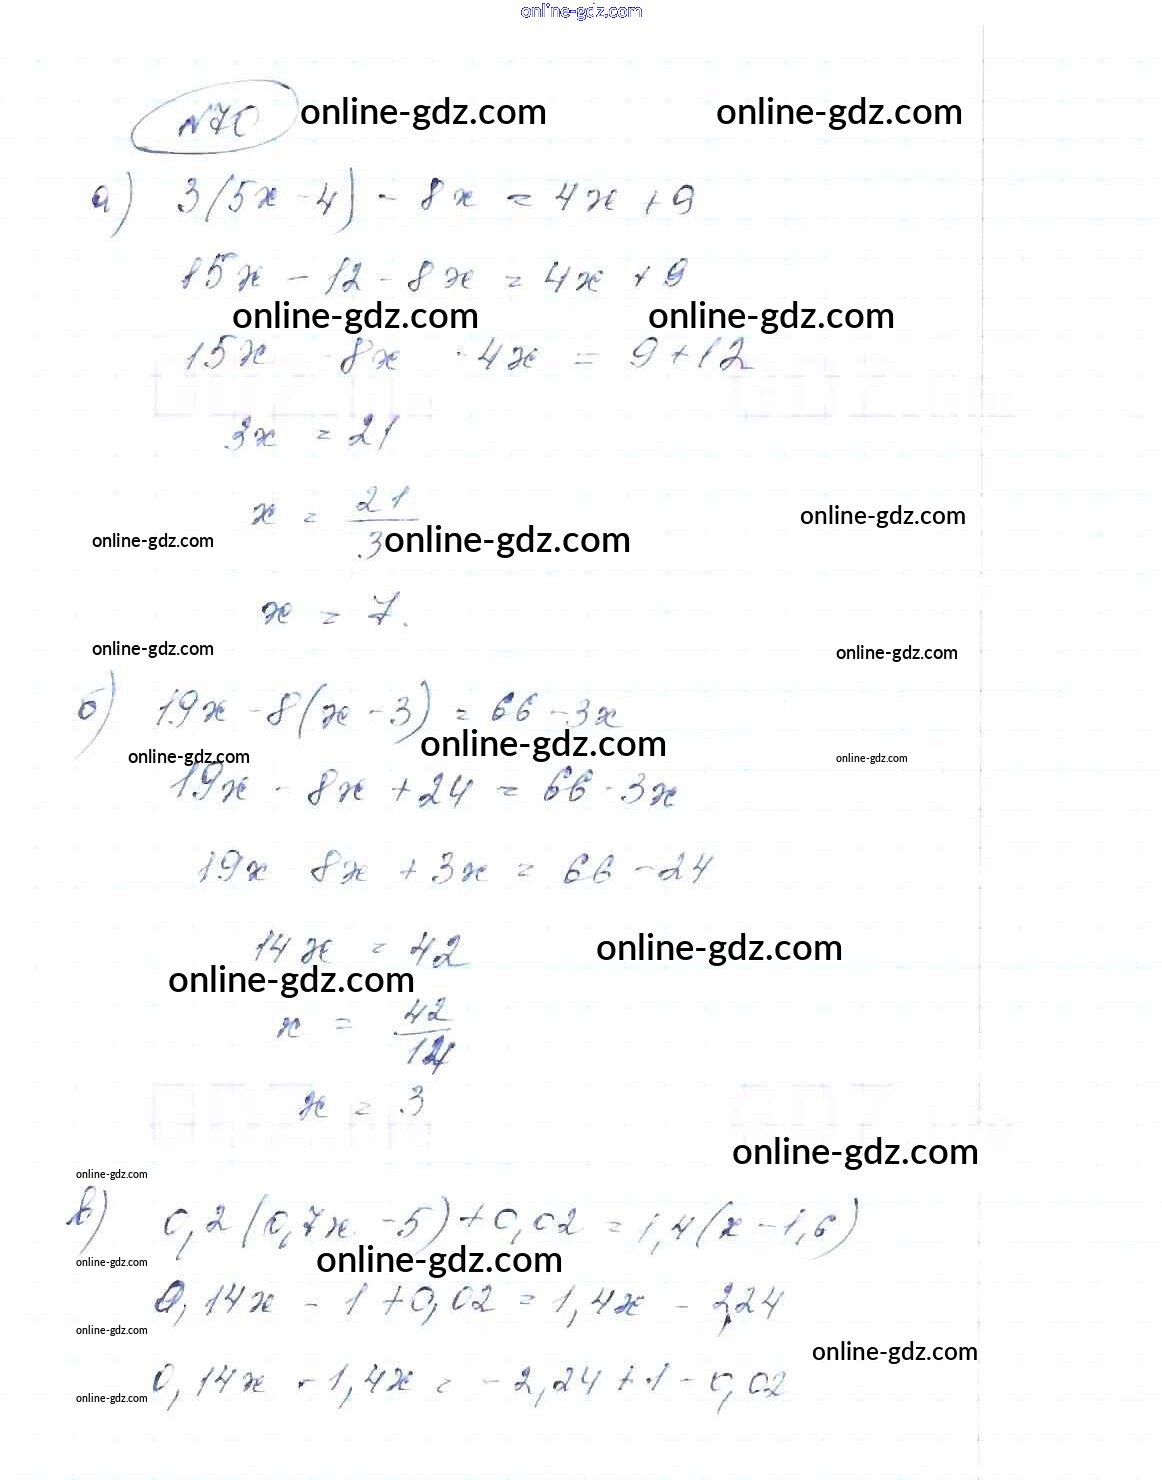 online-gdz.com
№70 online-gdz.com online-gdz.com
а) 3(5x - 4) - 8x = 4x + 9
15x - 12 - 8x = 4x + 9
online-gdz.com online-gdz.com
15x - 8x - 4x = 9 + 12
3x = 21
x = 21/3
online-gdz.com online-gdz.com online-gdz.com
x = 7.
online-gdz.com online-gdz.com
б) 19x - 8(x - 3) = 66 - 3x
online-gdz.com online-gdz.com online-gdz.com
19x - 8x + 24 = 66 - 3x
19x 8x + 3x = 66 - 24
14x = 42
online-gdz.com online-gdz.com
x = 42/14
x = 3
online-gdz.com online-gdz.com
в) 0,2(0,7x - 5) + 0,02 = 1,4(x - 1,6)
online-gdz.com online-gdz.com
0,14x - 1 + 0,02 = 1,4x - 2,24
online-gdz.com online-gdz.com
0,14x - 1,4x = -2,24 + 1 - 0,02
online-gdz.com